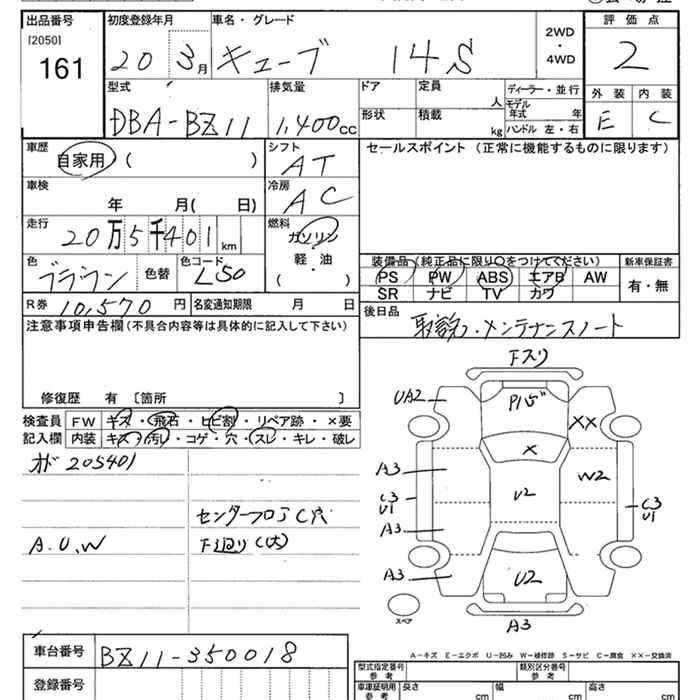 出品番号 初度登録年月 車名・グレード 評価点
[2050]
161 20 3月 キューブ 14S 2WD・4WD 2
型式 排気量 ドア 定員 人 ディーラー・並行 外装 内装
DBA-BZ11 1,400cc 形状 積載 kg モデル年式 年 E C
ハンドル 左・右
車歴 自家用 ( ) シフト AT セールスポイント (正常に機能するものに限ります)
車検 年 月( 日) 冷房 AC
走行 20万5千401km 燃料 ガソリン 軽・油 ( )
色 ブラウン 色替 色コード L50
装備品(純正品に限り〇をつけてください) 新車保証書
PS PW ABS エアB AW 有・無
SR ナビ TV カワ
R券 10,570円 名変通知期限 月 日
後日品 取説・メンテナンスノート
注意事項申告欄(不具合内容等は具体的に記入して下さい)
修復歴 有 〔箇所 〕
検査員 FW キズ・飛石・ヒビ割・リペア跡・×要
記入欄 内装 キズ・汚レ・コゲ・穴・スレ・キレ・破レ
オド 205401
センターフロアC穴
A.U.W 下廻りC(大)
下スリ
UA2
XX
X
A3 W2
U2
C3 U1 C3 U1
A3
A3 U2
スペア A3
A-キズ E-エクボ U-凹み W-補修跡 S-サビ C-腐食 XX-交換済
車台番号 BZ11-350018
型式指定番号 参考 類別区分番号 参考
登録番号 車庫証明用 参考 長さ cm 幅 cm 高さ cm